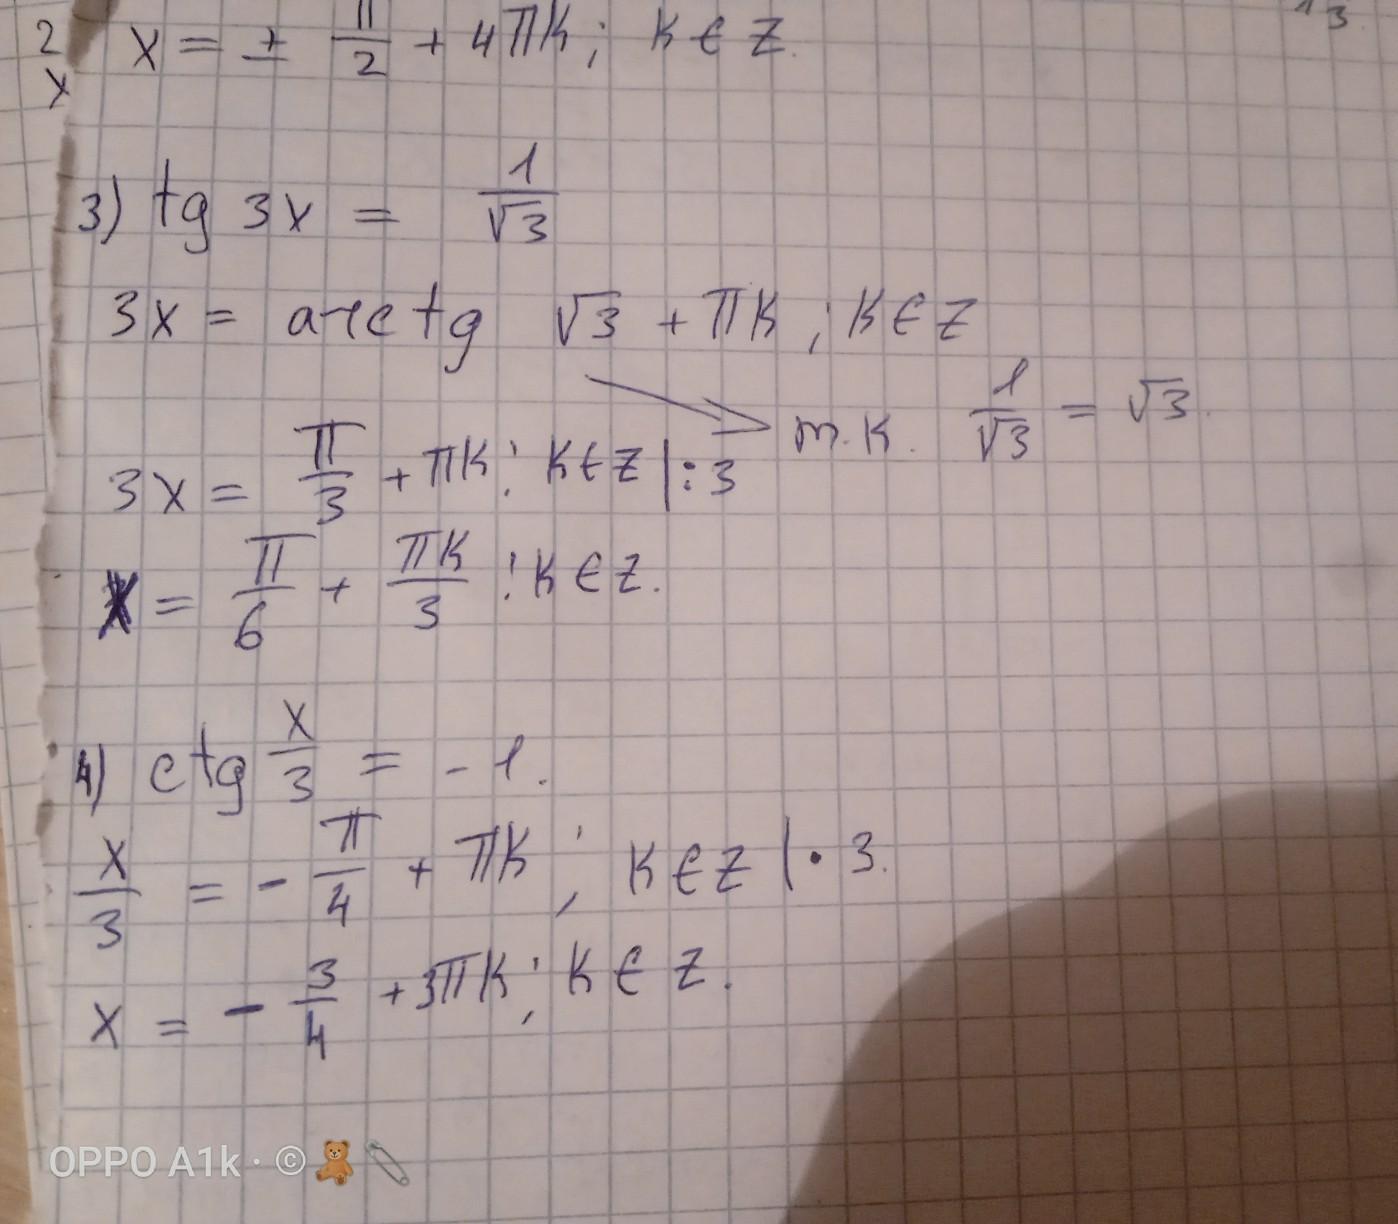 2 x = ± π/2 + 4πk; k ∈ Z.
x
3) tg 3x = 1/√3
3x = arctg √3 + πk; k ∈ Z
т.к. 1/√3 = √3.
3x = π/3 + πk; k ∈ Z |:3
x = π/6 + πk/3; k ∈ Z.
4) ctg x/3 = -1.
x/3 = - π/4 + πk; k ∈ Z | · 3.
x = - 3/4 + 3πk; k ∈ Z.
OPPO A1k · ©🧸🧷